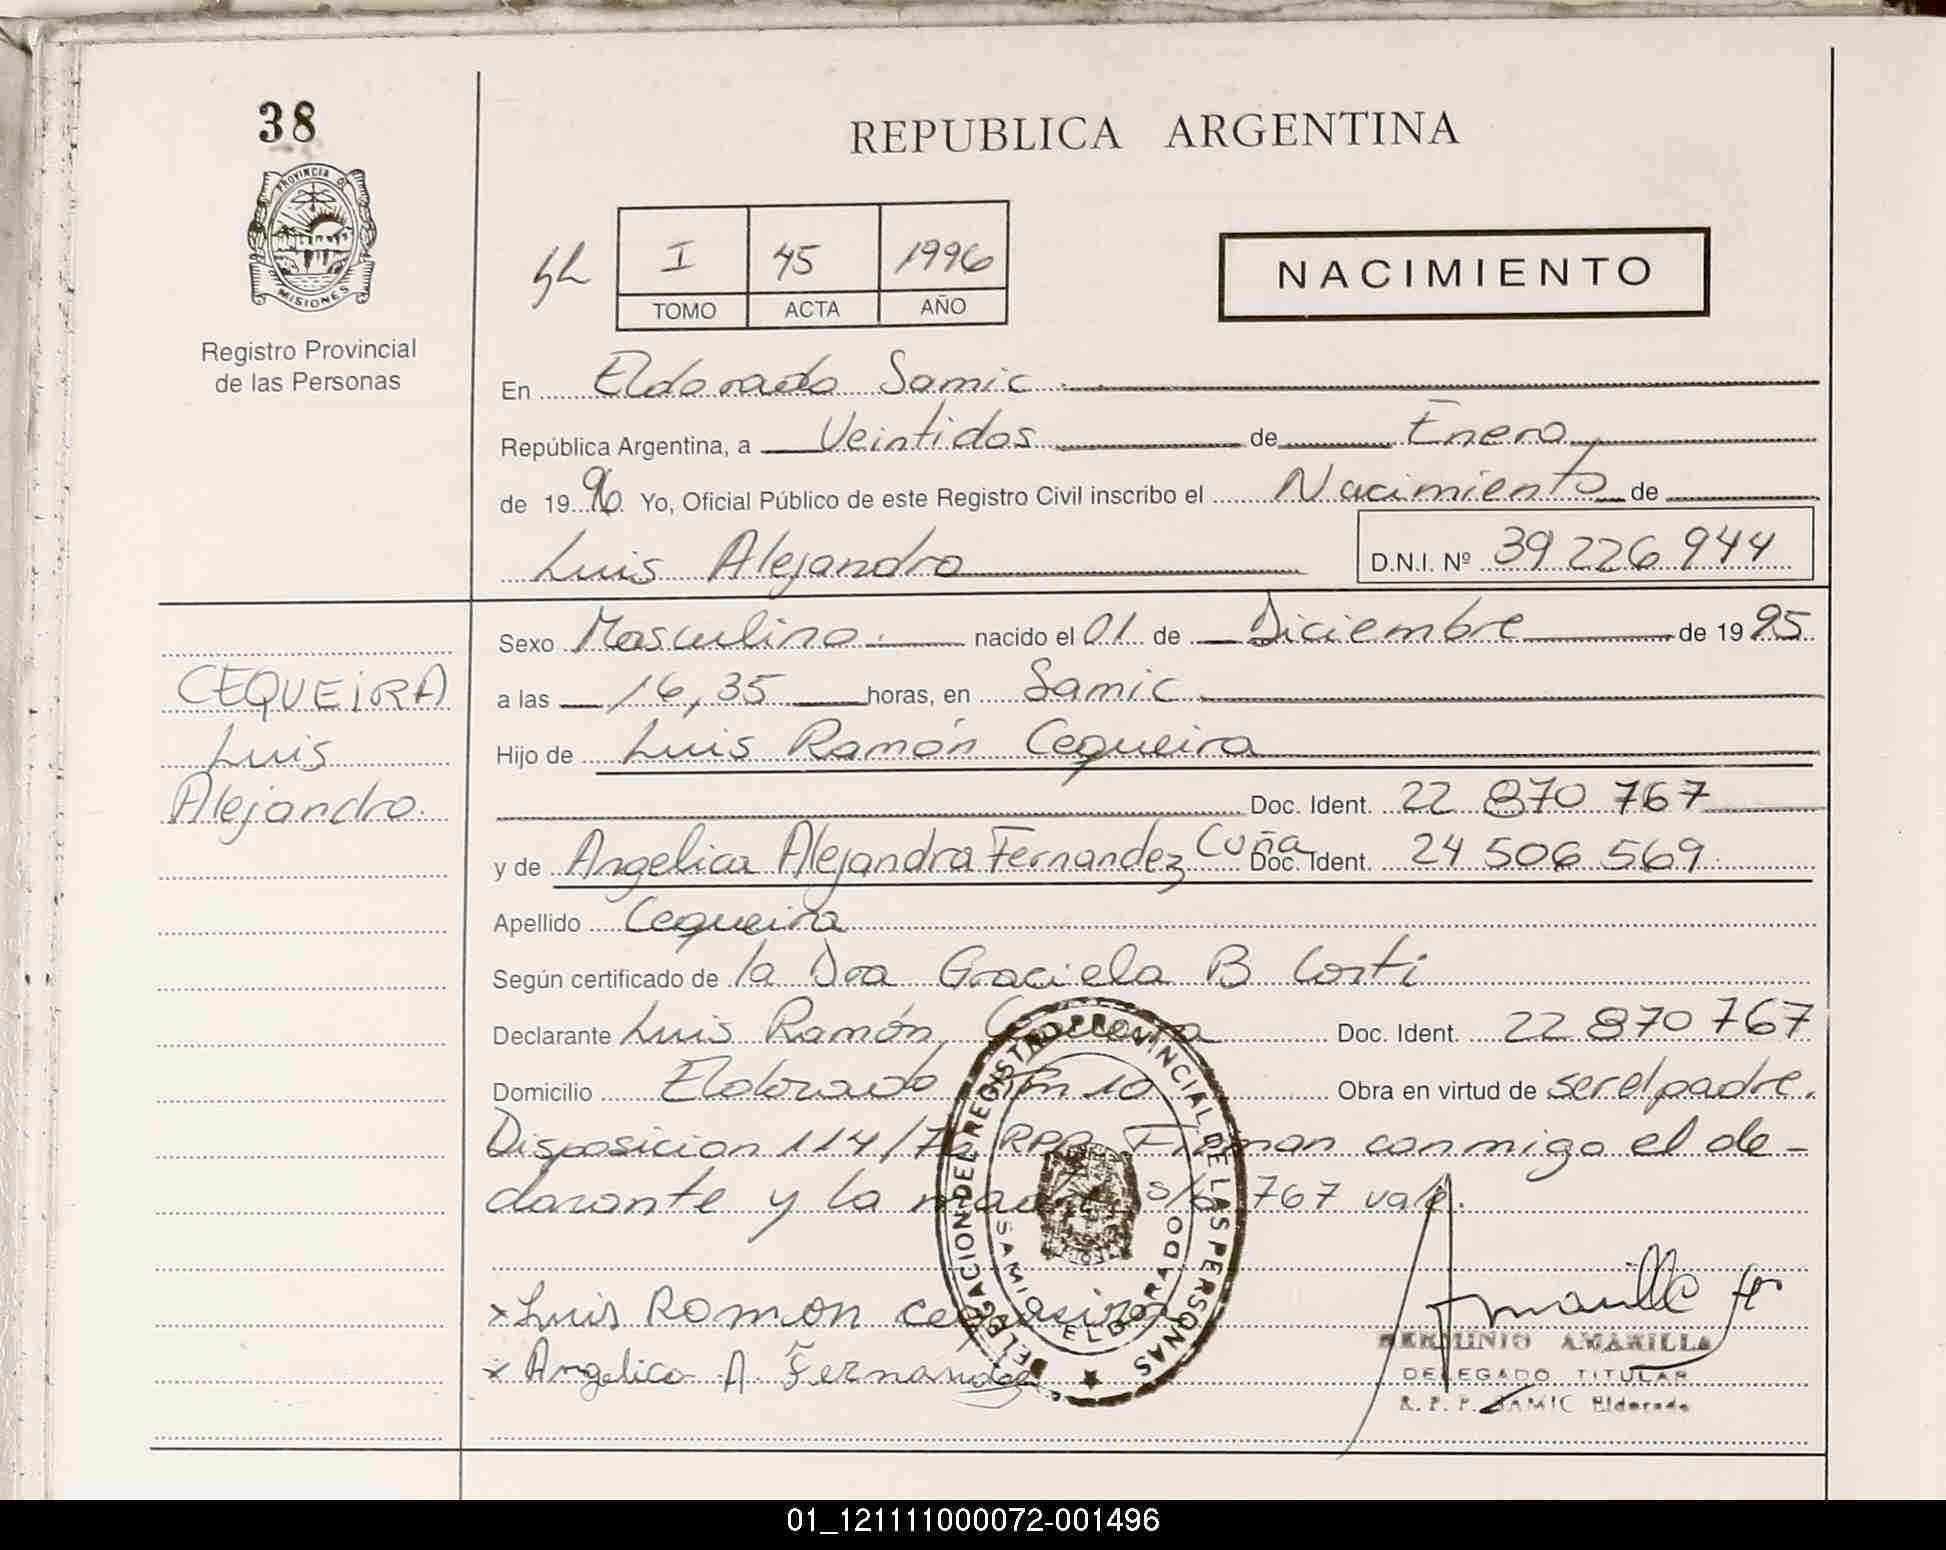 38
PROVINCIA D
MISIONES
Registro Provincial
de las Personas
REPUBLICA ARGENTINA
I 45 1996
TOMO ACTA AÑO
NACIMIENTO
En Eldorado Samic
República Argentina, a Veintidos de Enero
de 1996 Yo, Oficial Público de este Registro Civil inscribo el Nacimiento de
Luis Alejandro D.N.I. Nº 39 226 944
Sexo Masculino. nacido el 01 de Diciembre de 1995
a las 16,35 horas, en Samic
Hijo de Luis Ramón Cequeira
Doc. Ident. 22 870 767
y de Angelica Alejandra Fernandez Cuña Doc. Ident. 24 506 569
Apellido Cequeira
Según certificado de la Dra Graciela B Corti
Declarante Luis Ramón Cequeira Doc. Ident. 22 870 767
Domicilio Eldorado Km 10 Obra en virtud de ser el padre.
Disposicion 114/ RPP. Firman conmigo el de-
clarante y la madre s/b 767 vale.
CEQUEIRA
Luis
Alejandro.
x Luis Ramon cequeira
x Angelica A Fernandez
DELEGACION DEL REGISTRO PROVINCIAL DE LAS PERSONAS
SAMIC ELDORADO
Amarilla
HERMINIO AMARILLA
DELEGADO TITULAR
R. P. P. SAMIC Eldorado
01_121111000072-001496